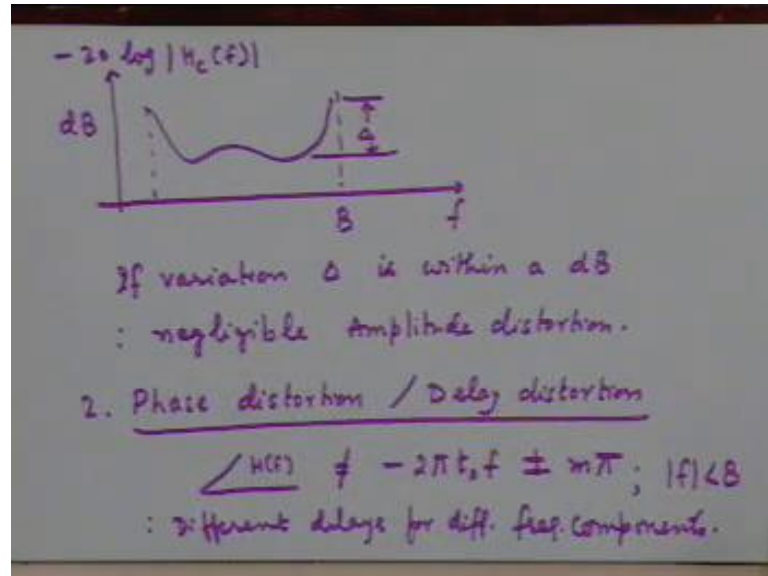 - 20 log |Hc(f)|
dB
Δ
B f
If variation Δ is within a dB
: negligible Amplitude distortion.
2. Phase distortion / Delay distortion
∠H(f) ≠ - 2π t₀ f ± mπ ; |f|<B
: Different delays for diff. freq. components.